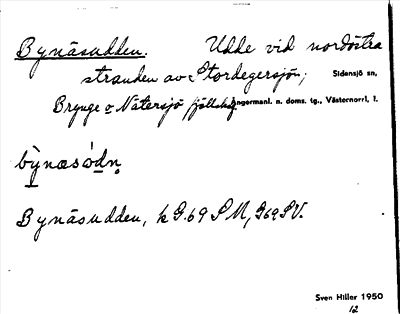 Bynäsudden. Udde vid nordöstra
stranden av Stordegersjön; Sidensjö sn,
Brynge o Nätersjö Ångermanl. n. doms. tg., Västernorrl. l.
bỳnæsò́dn̥
Bynäsudden, k G.69 S M, G69 SV.
Sven Hiller 1950
12